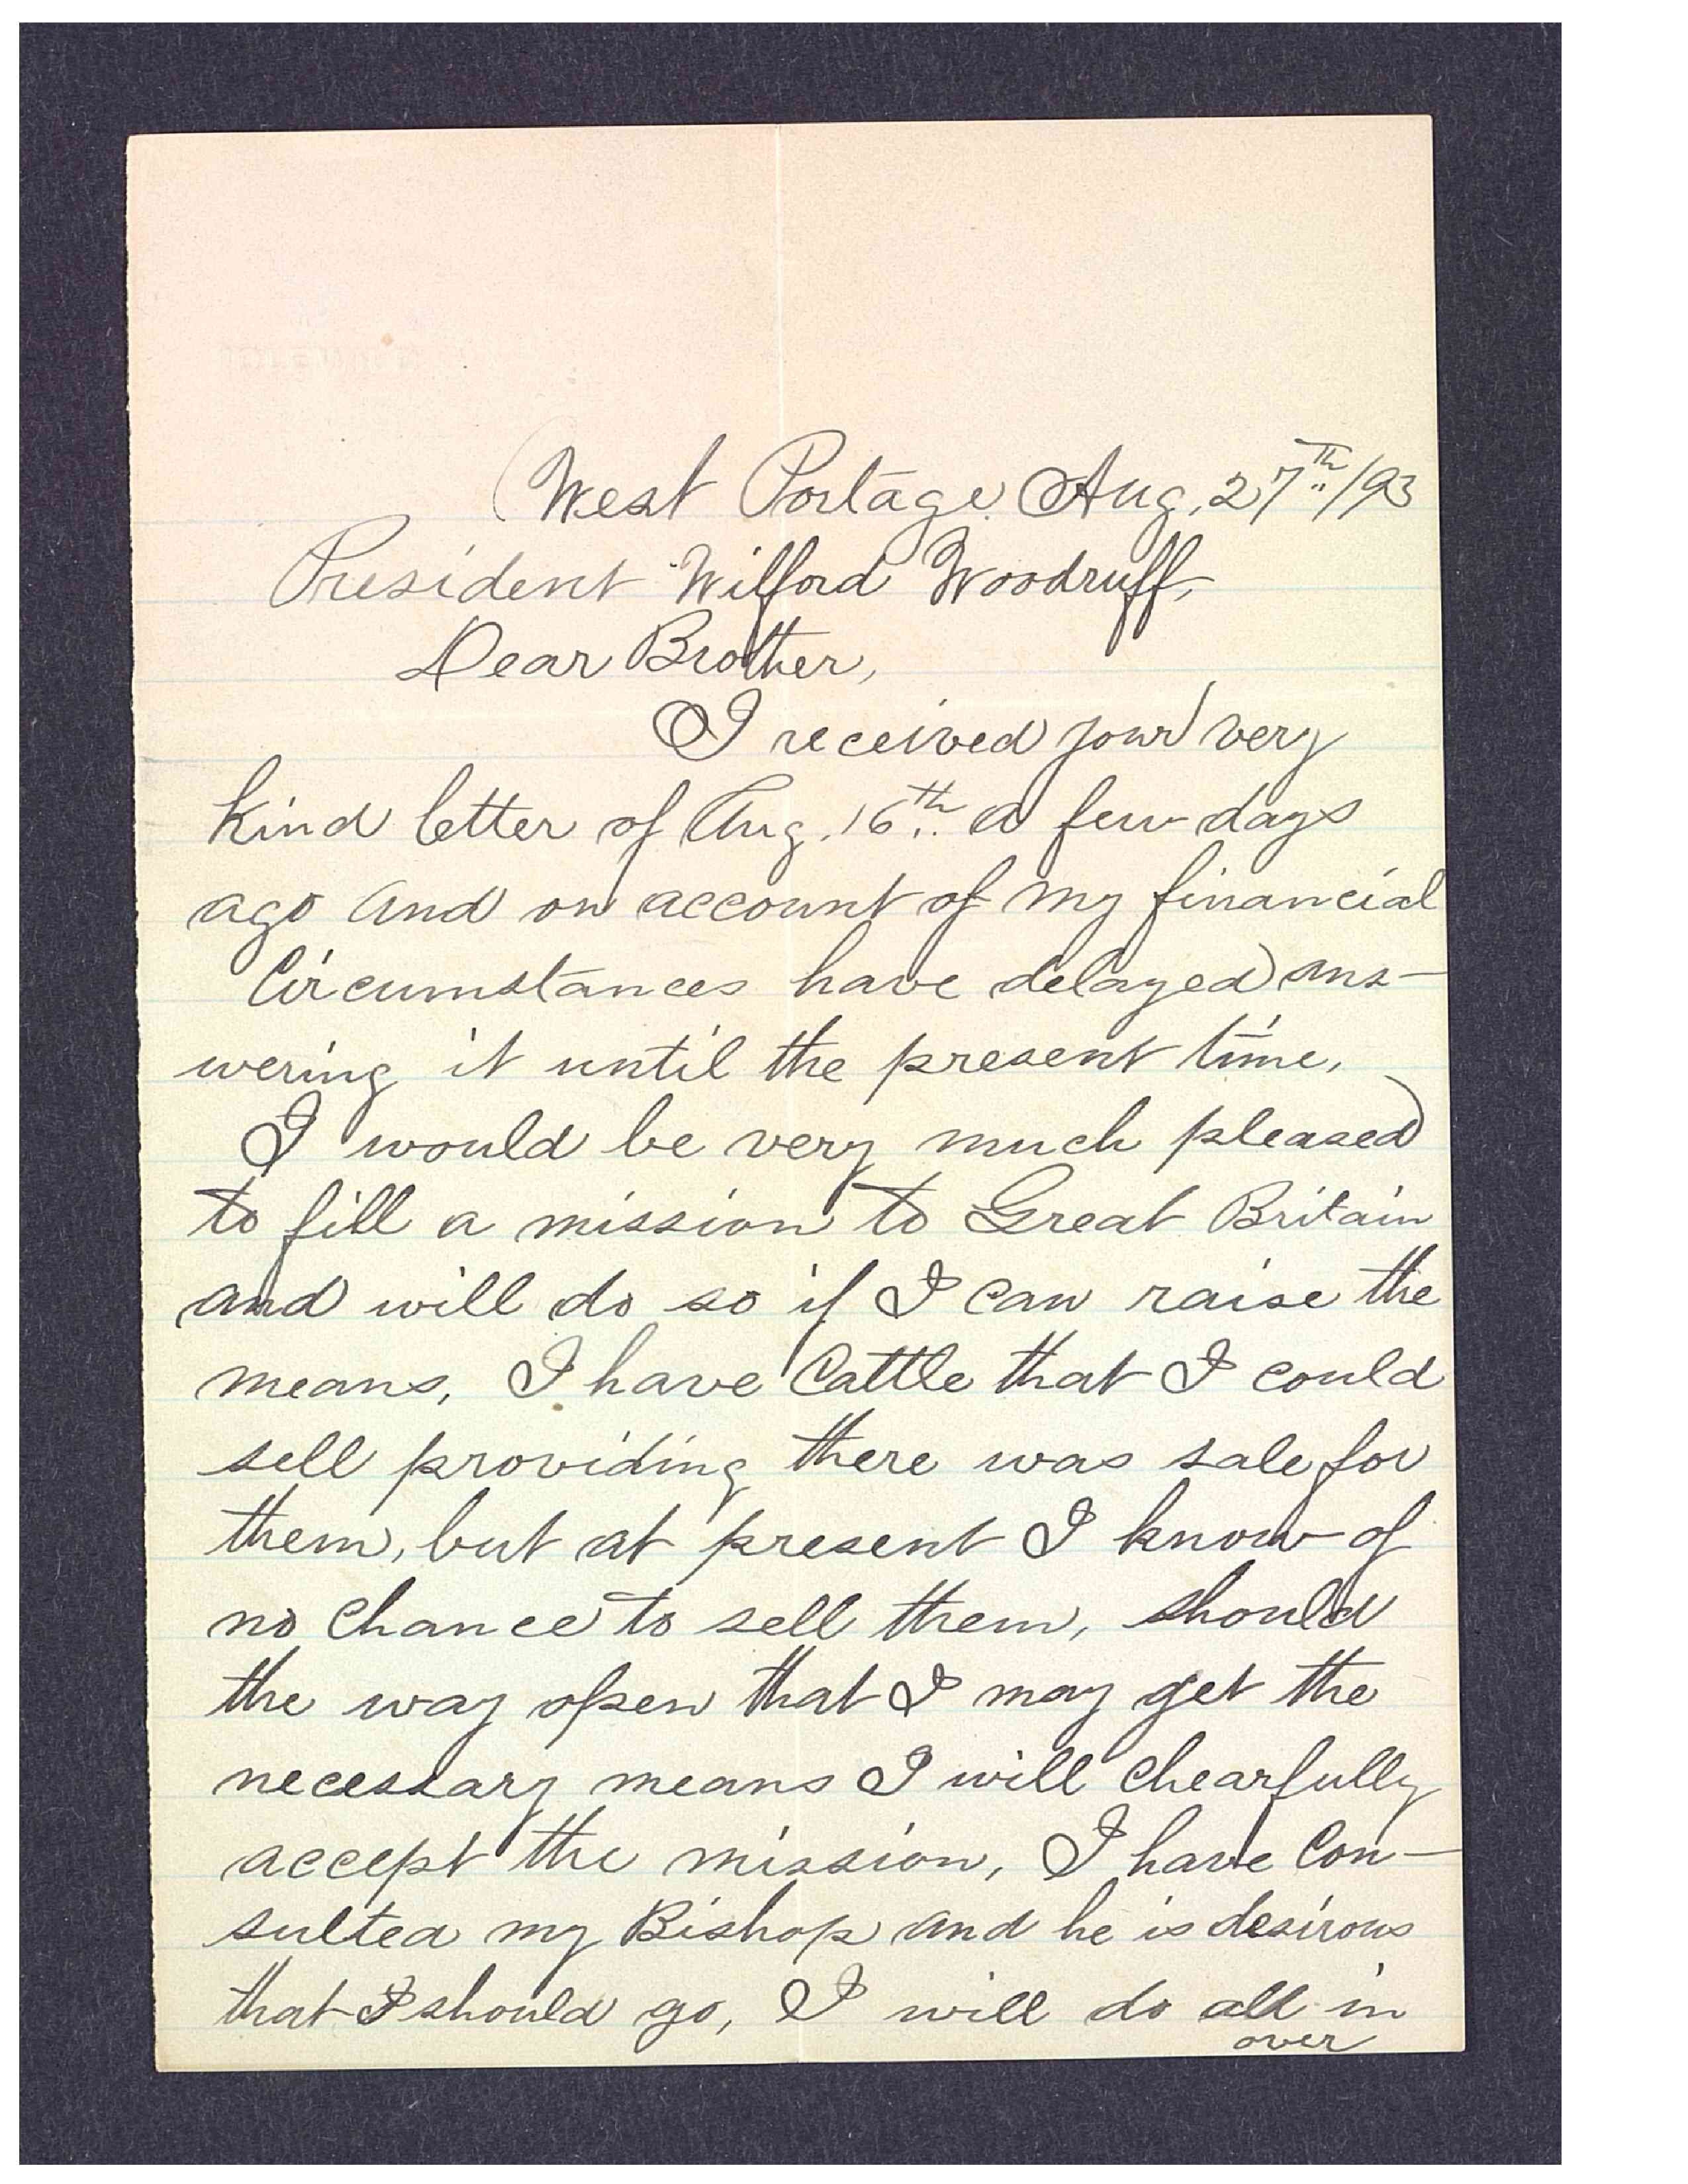 West Portage Aug, 27th /93
President Wilford Woodruff,
Dear Brother,
I received your very
kind letter of Aug. 16th a few days
ago and on account of my financial
Circumstances have delayed ans-
wering it until the present time,
I would be very much pleased
to fill a mission to Great Britain
and will do so if I can raise the
means, I have Cattle that I could
sell providing there was sale for
them, but at present I know of
no chance to sell them, should
the way open that I may get the
necessary means I will chearfully
accept the mission, I have Con-
sulted my Bishop and he is desirous
that I should go, I will do all in
over